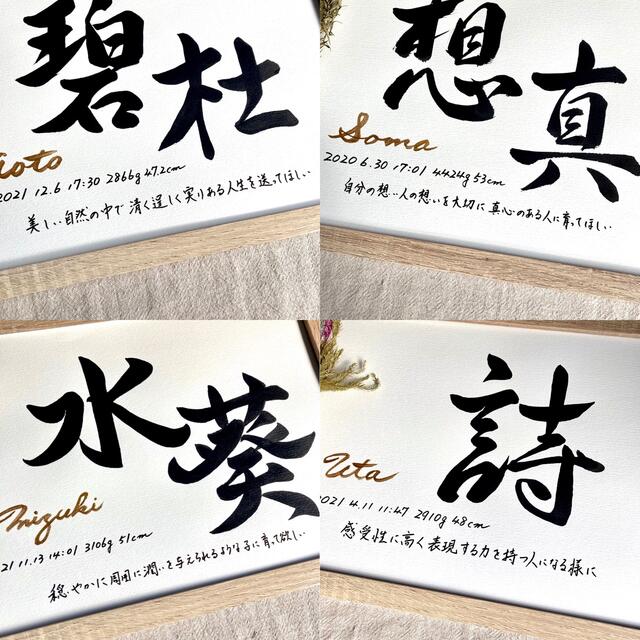 碧杜
2021 12.6 17:30 2866g 47.2cm
美しい自然の中で 清く逞しく実りある人生を送ってほしい
想真
Soma
2020 6.30 17:01 4424g 53cm
自分の想い人の想いを大切に 真心のある人に育ってほしい
水葵
Mizuki
21 11.13 14:01 3106g 51cm
穏やかに周囲に潤いを与えられるような子に育って欲しい
詩
Uta
2021 4.11 11:47 2910g 48cm
感受性に高く表現する力を持つ人になる様に